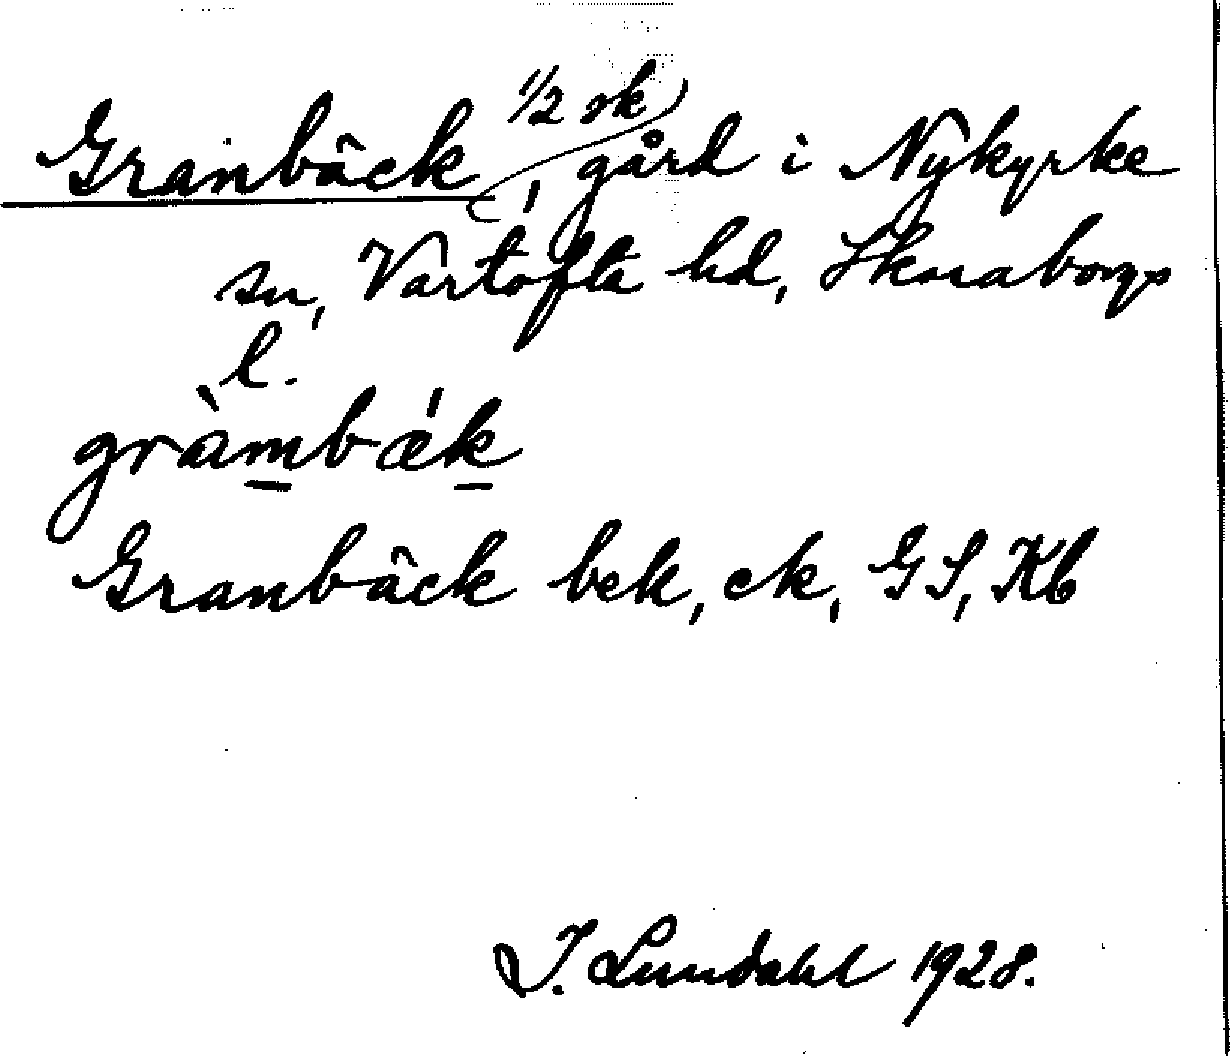 Granbäck 1/2 sk, gård i Nykyrke
sn, Vartofta hd, Skaraborgs
l.
gràmbǽk
Granbäck bek, ek, GS, Kb
I. Lundahl 1928.